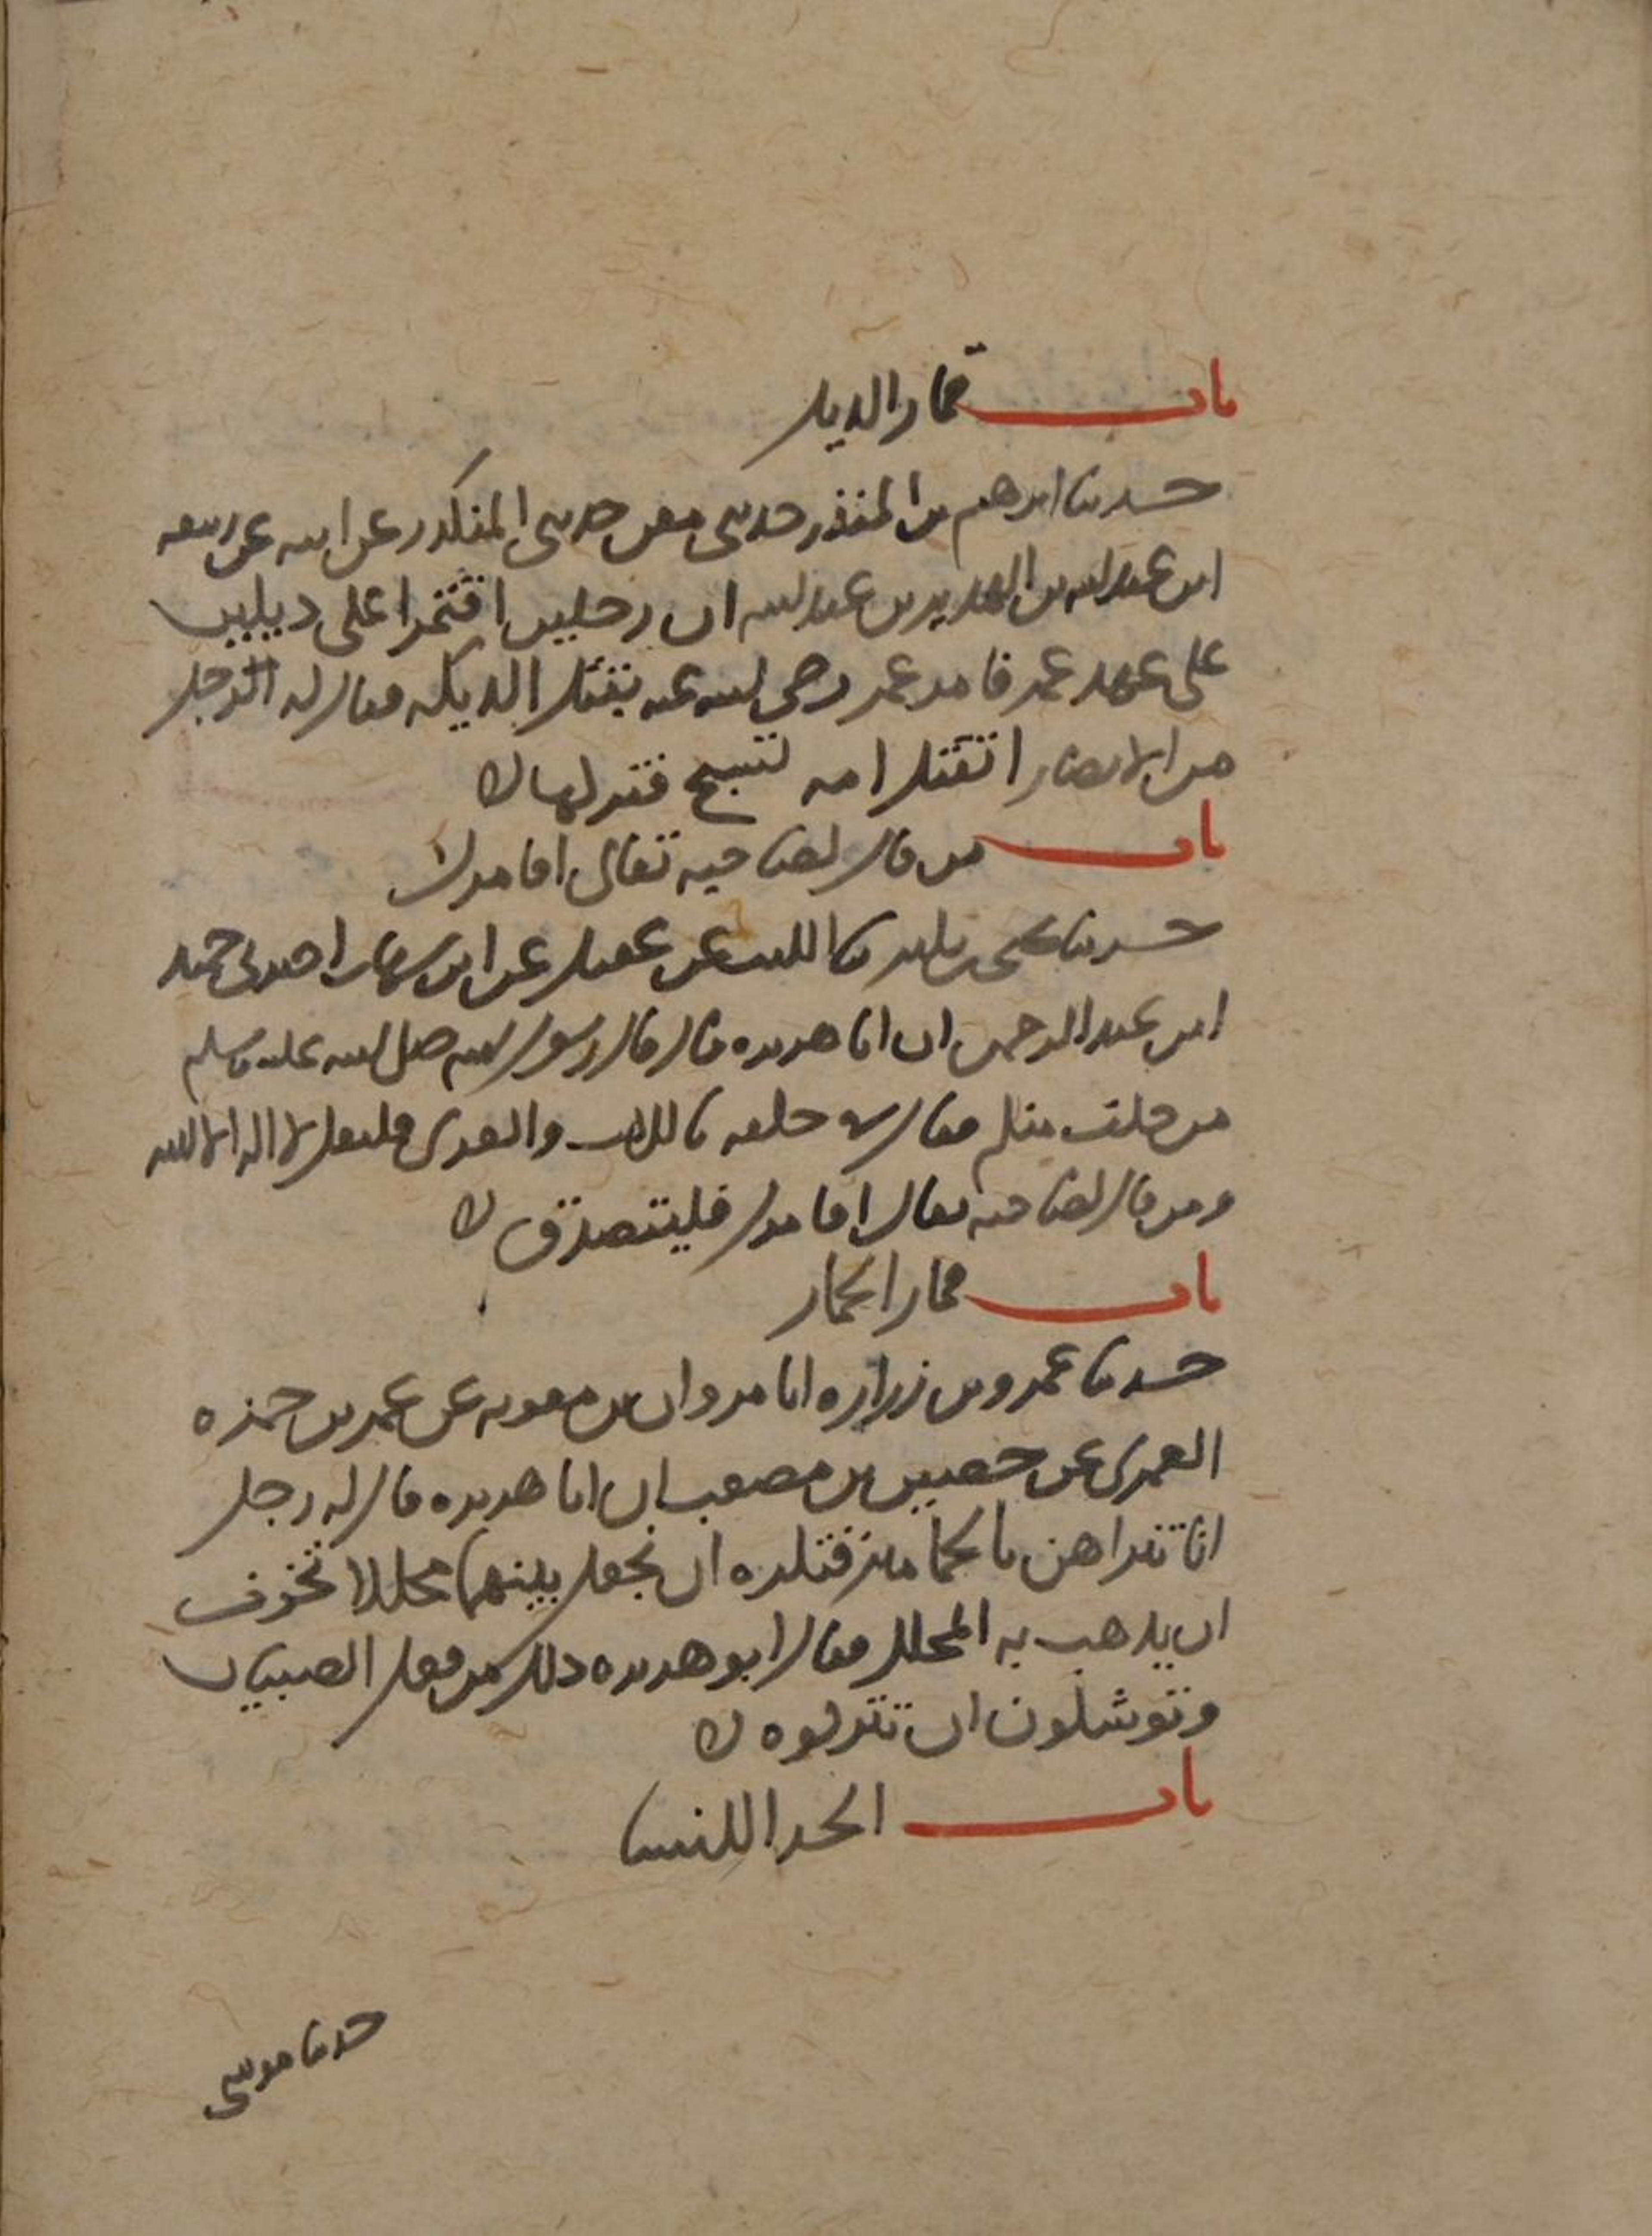 باب قمار الديك
حدثنا ابرهيم بن المنذر حدثني معن حدثني المنكدر عن ابيه عن ربيعه
ابن عبد الله بن الهدير بن عبد الله ان رجلين اقتمرا على ديكين
على عهد عمر فامر عمر رضي الله عنه بقتل الديكه فقال له الرجل
من الانصار اتقتل امه تسبح فتركها
باب من قال لصاحبه تعال اقامرك
حدثنا يحيى بن بكير ثنا الليث عن عقيل عن ابن شهاب اخبرني حميد
ابن عبد الرحمن ان ابا هريره قال قال رسول الله صلى الله عليه وسلم
من حلف منكم فقال في حلفه باللات والعزى فليقل لا اله الا الله
ومن قال لصاحبه تعال اقامرك فليتصدق
باب قمار الحمام
حدثنا عمرو بن زراره انا مروان بن معويه عن عمر بن حمزه
العمري عن حصين بن مصعب ان ابا هريره قال له رجل
انا نتراهن بالحمامين فنكره ان نجعل بينهما محللا تخوف
ان يذهب به المحلل فقال ابو هريره ذلك من فعل الصبيان
وتوشكون ان تتركوه
باب الحدا للنسا
حدثنا موسى